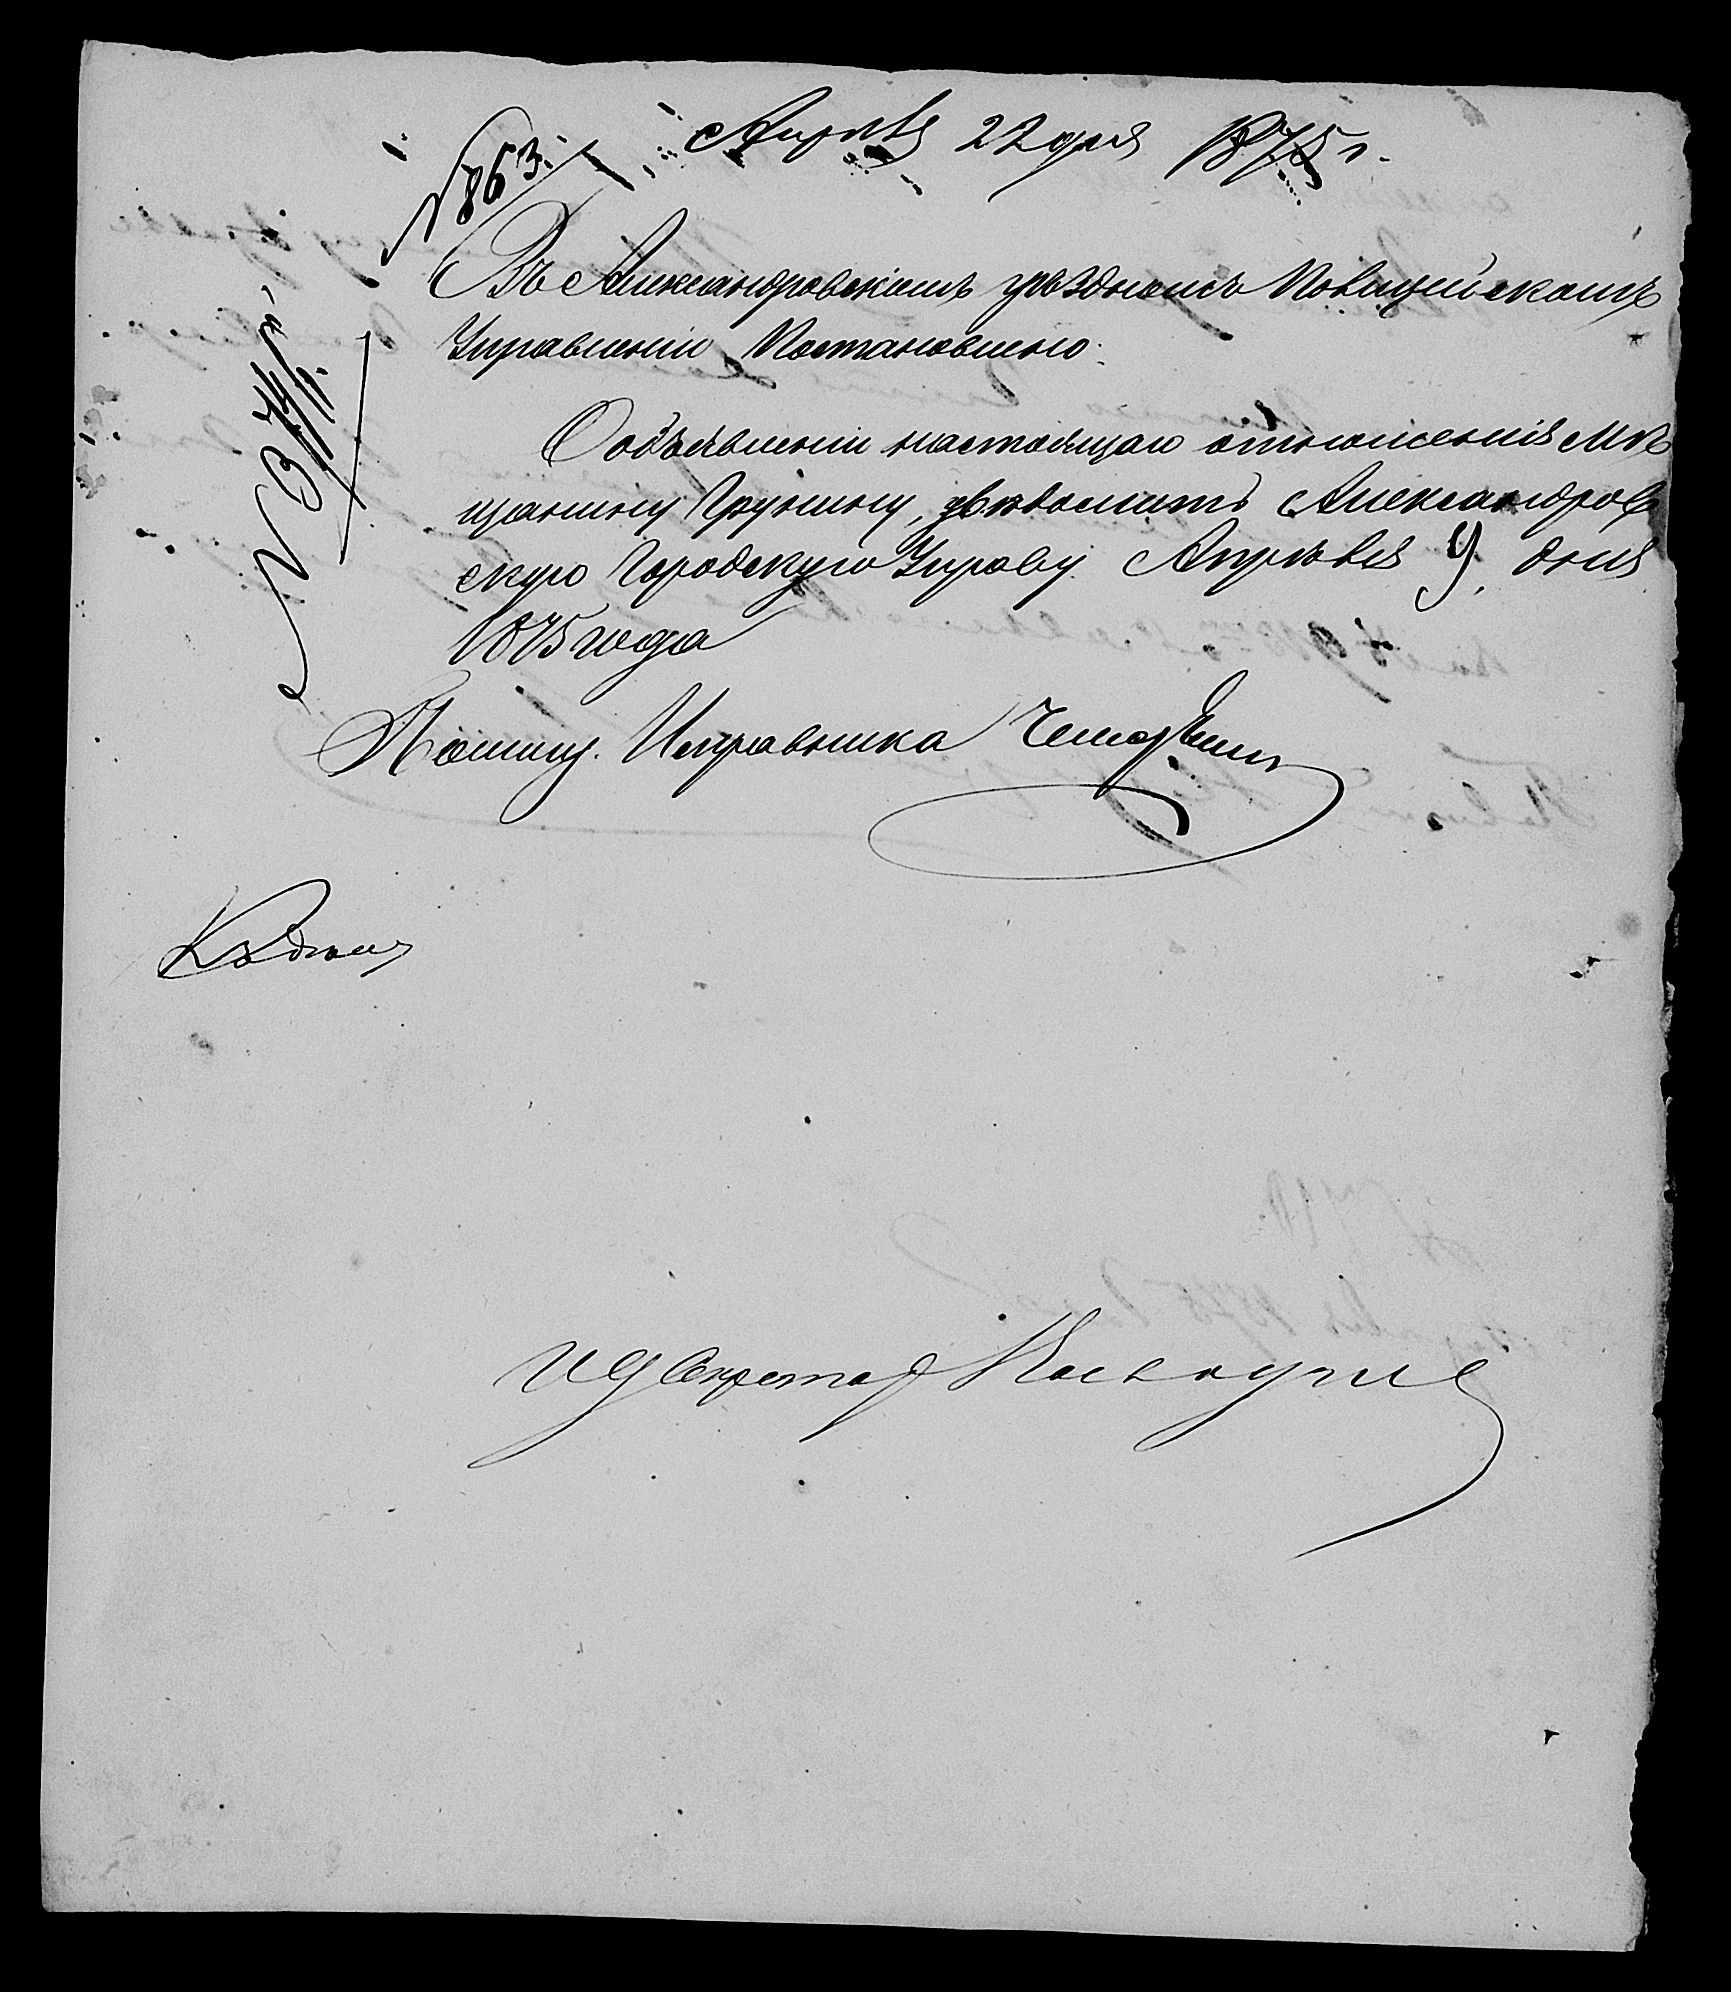 Апрѣля 22 дня 1875 г.
№ 863.
Въ Александровскомъ уѣздномъ Полицейскомъ
Управленіи Постановлено:
Объ объявленіи настоящаго отношенія Мѣ
щанину Грунину, увѣдомить Александров
скую Городскую Управу. Апрѣля 9, дня
1875 года
Помощ. Исправника
Къ дѣлу
И Д Секретар